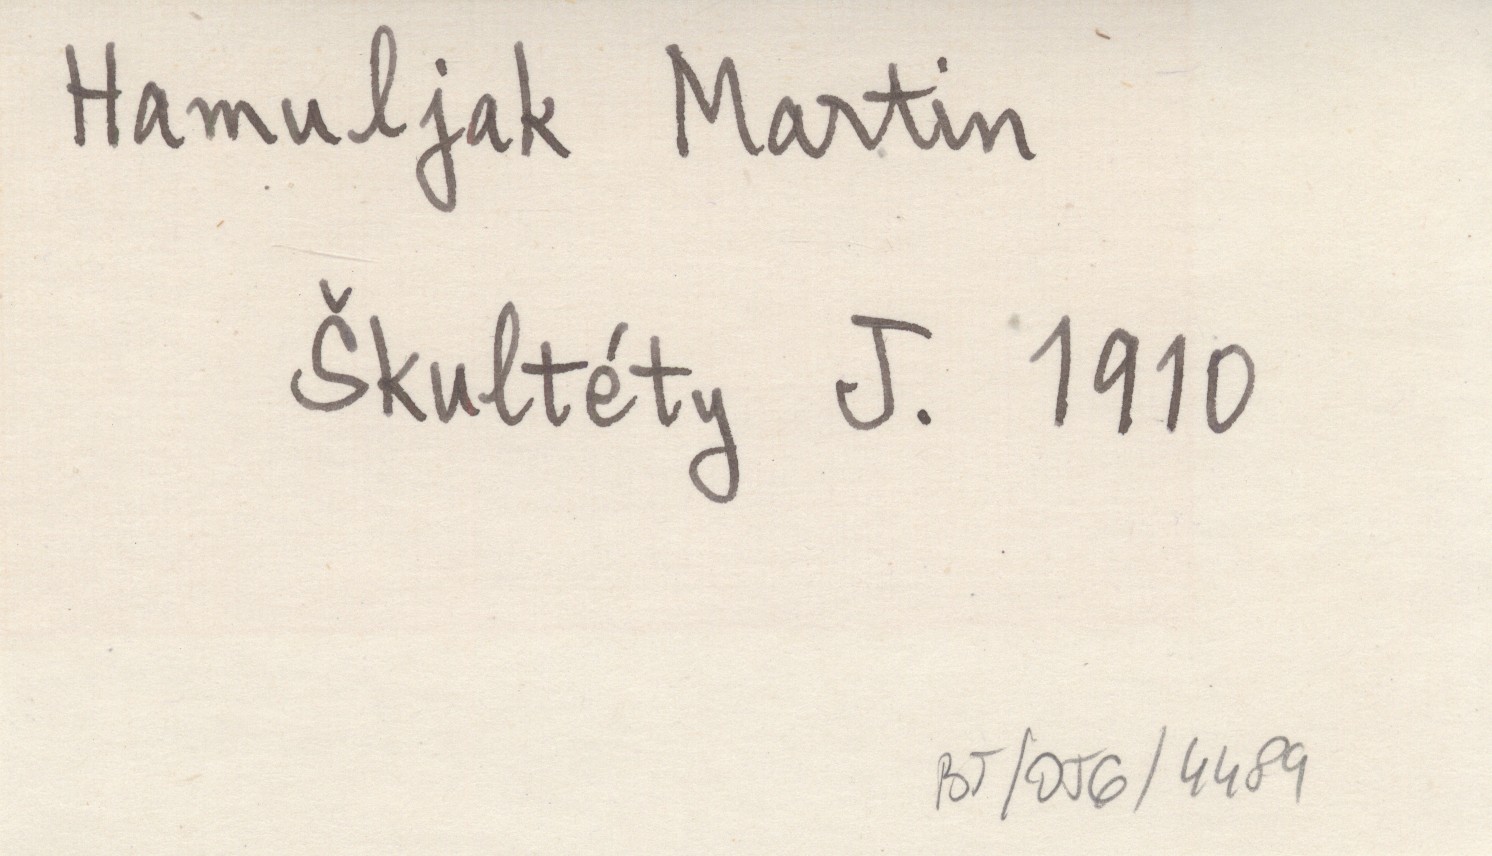 Hamuljak Martin
Škultéty J. 1910
BJ/DJG/4489